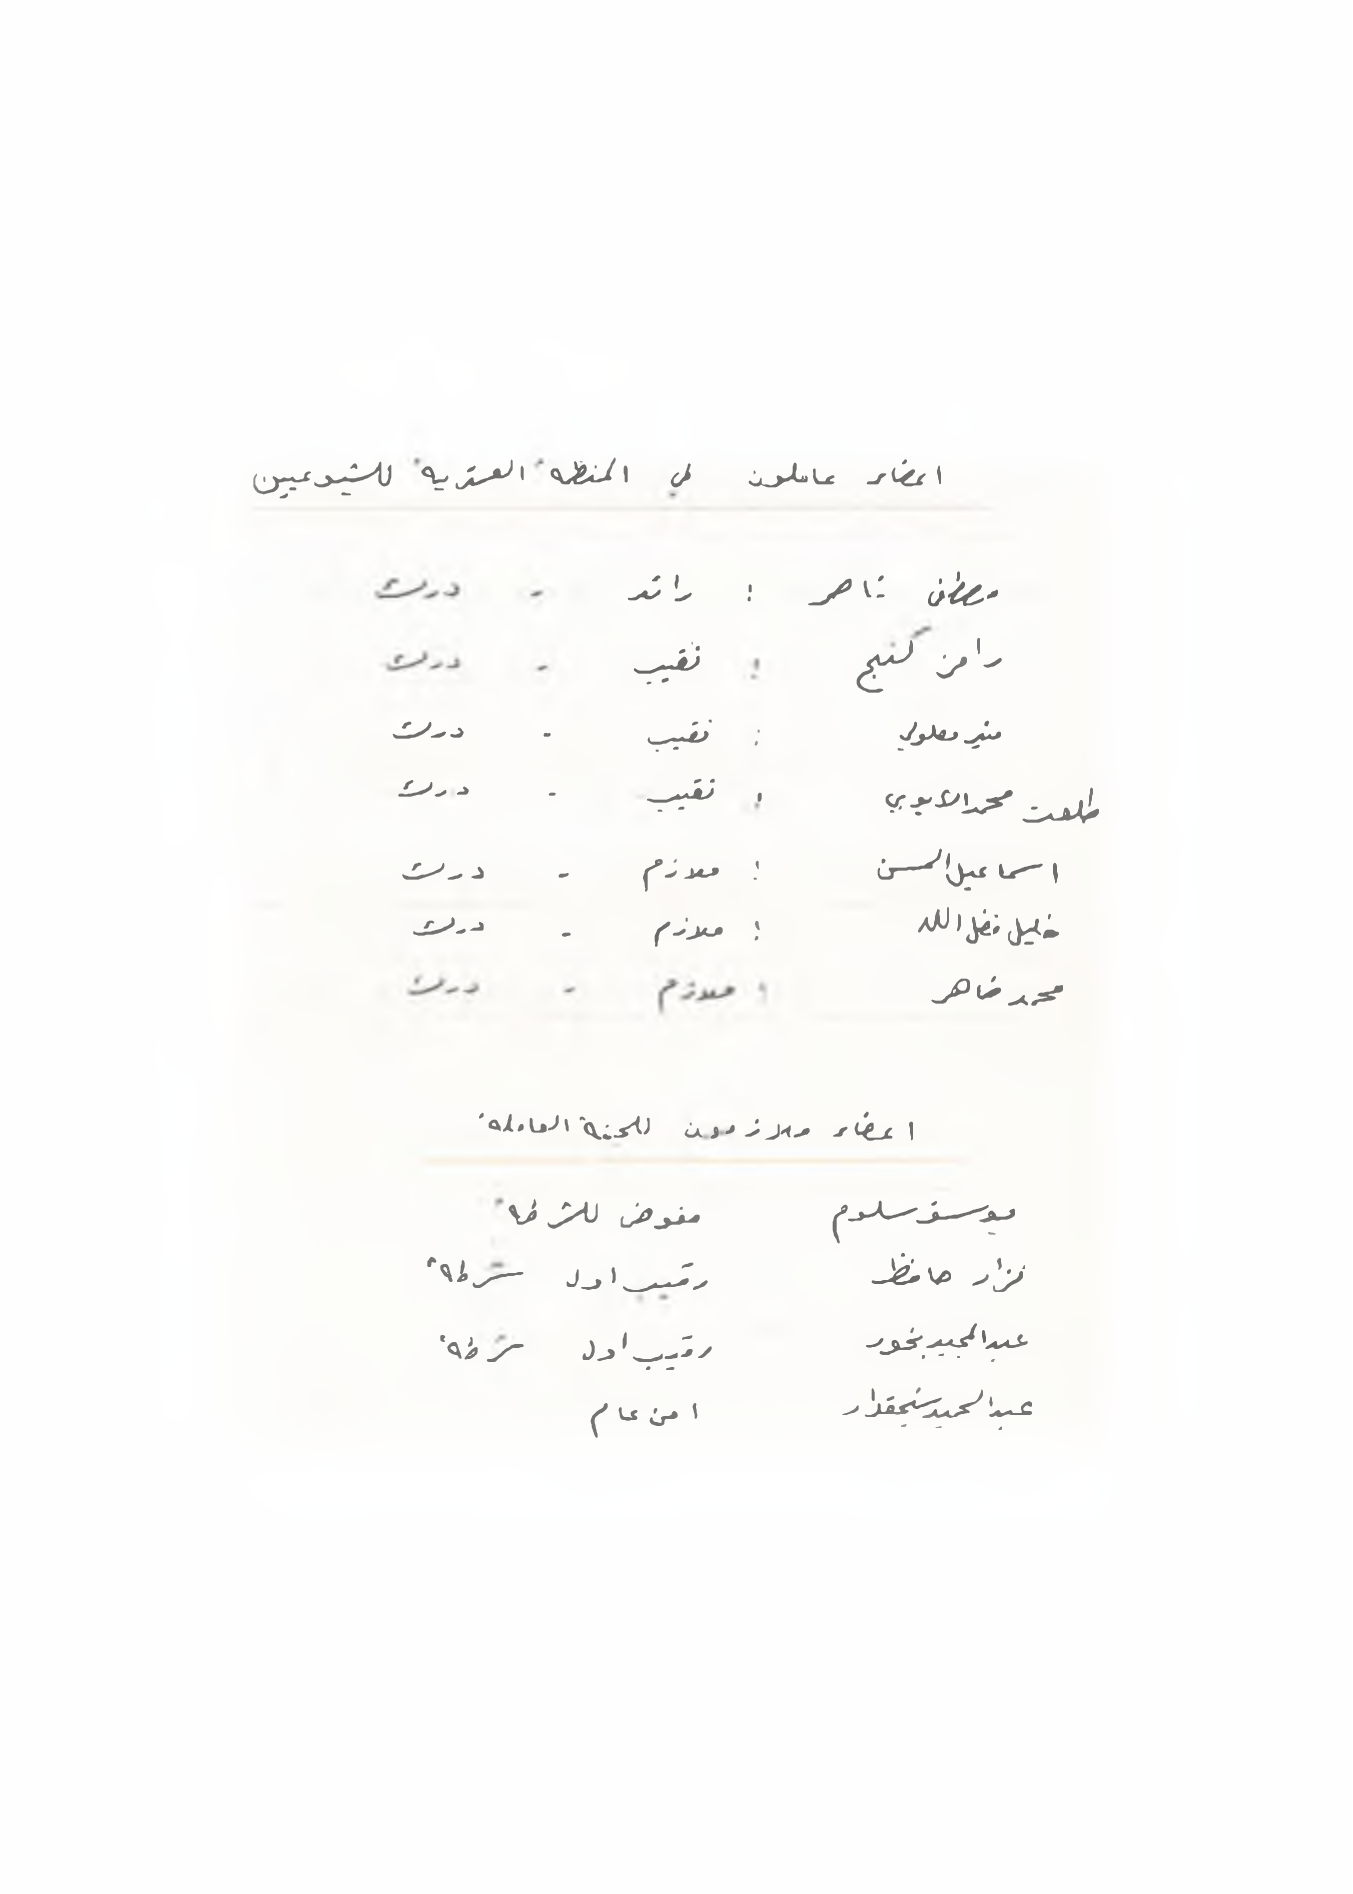 اعضاء عاملون في المنظمة العسكرية للشيوعيين
مصطفى ناصر : رائد - درك
رامز كنج : نقيب - درك
منير معلولي : نقيب - درك
طلعت محمد الايوبي : نقيب - درك
اسماعيل الحسن : ملازم - درك
خليل فضل الله : ملازم - درك
محمد ضاهر : ملازم - درك
اعضاء ملازمون للجنة العاملة
يوسف سلوم مفوض للشرطة
نزار حافظ رقيب اول شرطة
عبد المجيد بخور رقيب اول شرطة
عبد الحميد سنجقدار امن عام